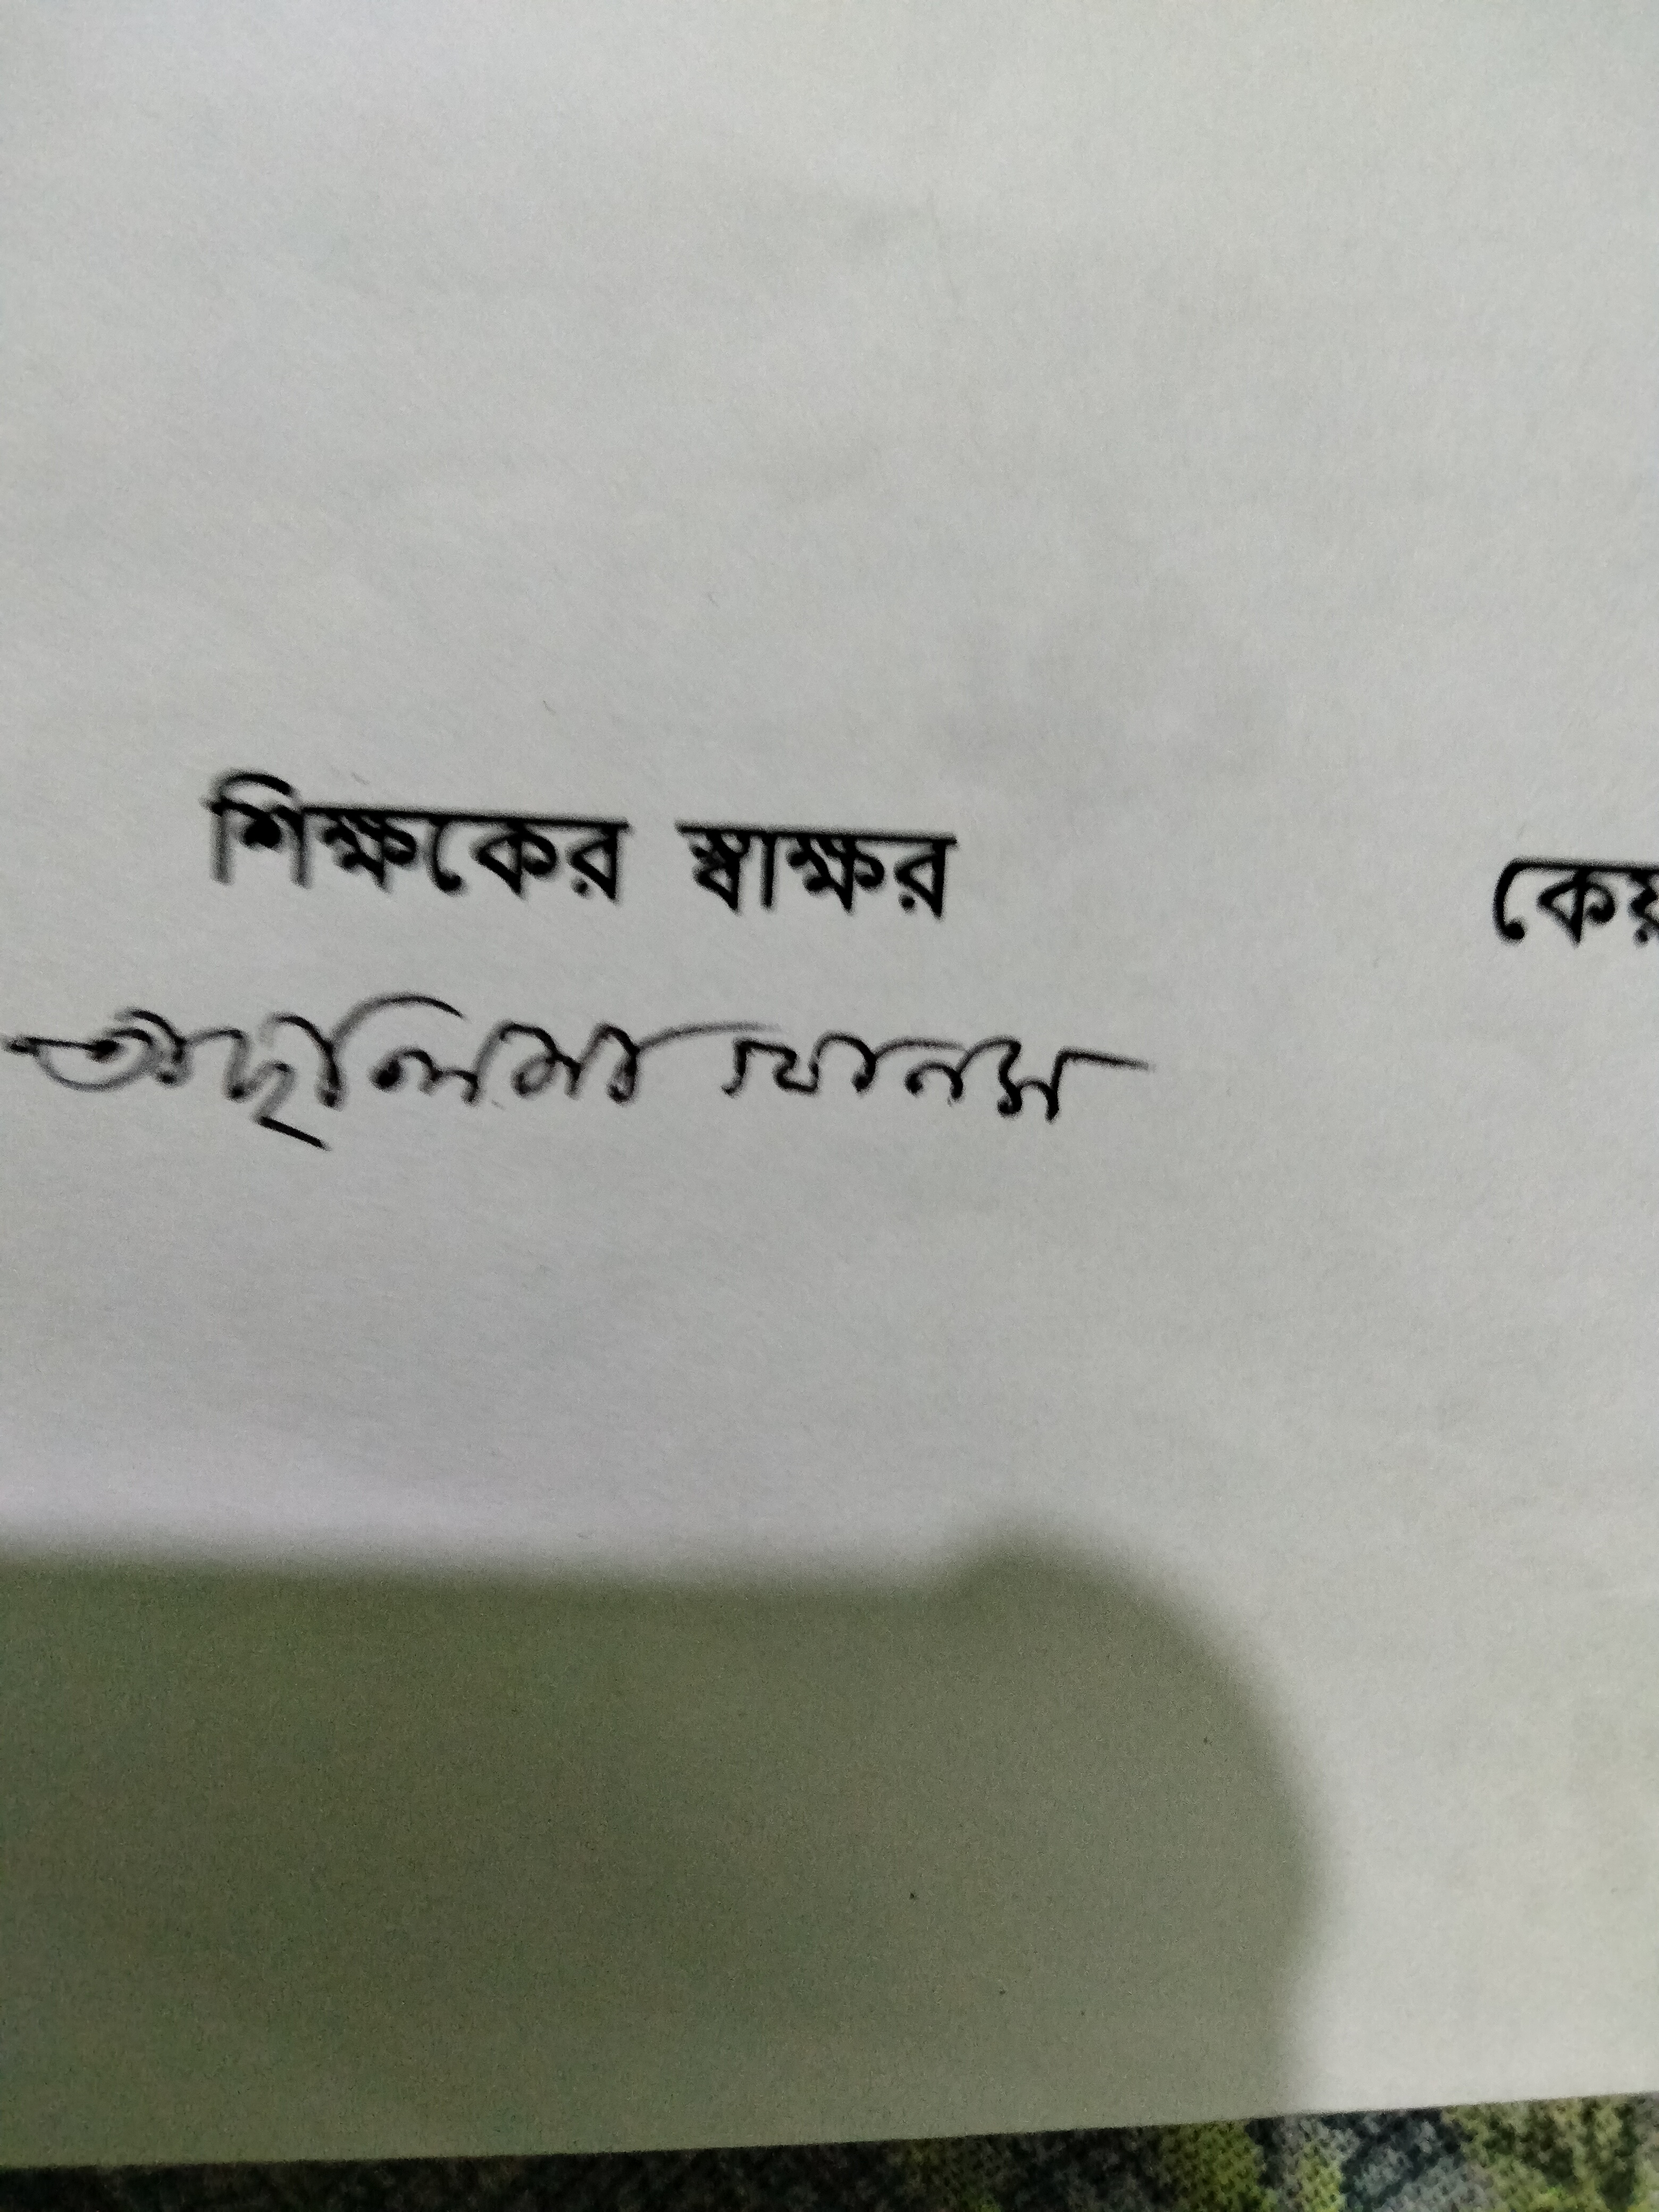 শিক্ষকের স্বাক্ষর কেয়
খানম